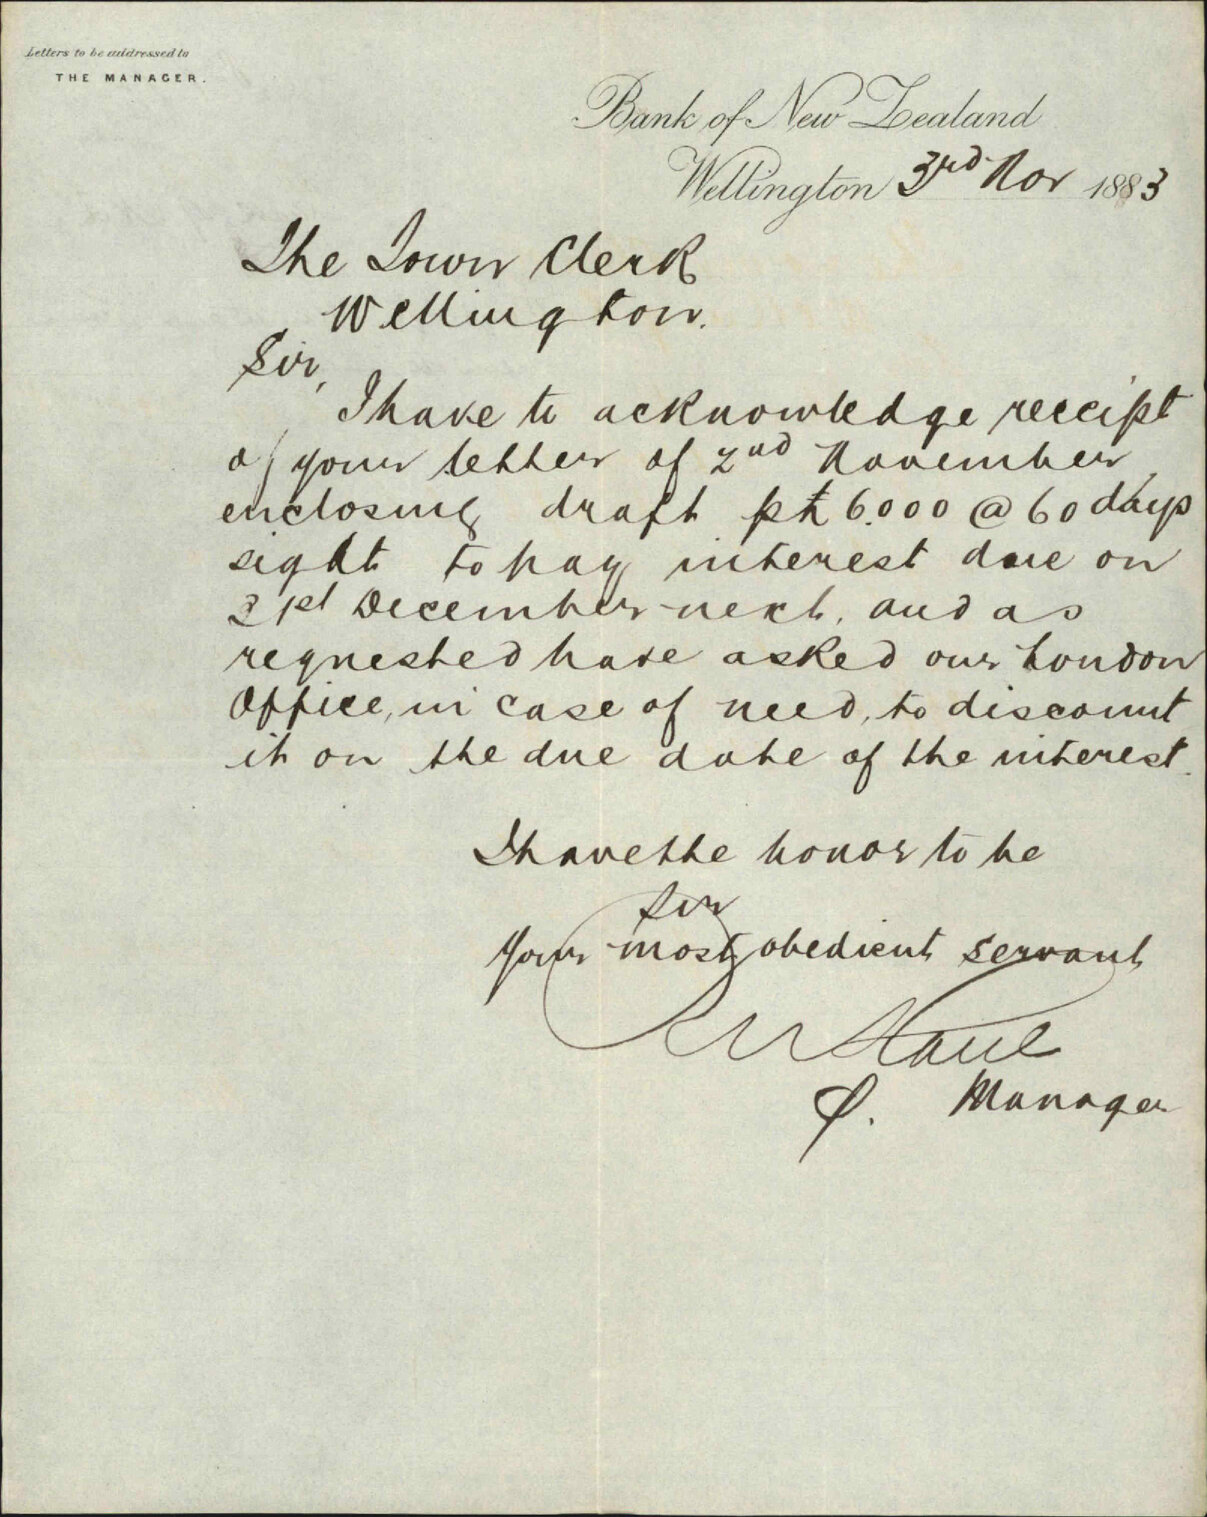 Letters to be addressed to
THE MANAGER.
Bank of New Zealand
Wellington 3rd Nov 1883
The Town Clerk
Wellington.
Sir,
I have to acknowledge receipt
of your letter of 2nd November
enclosing draft p £6.000 @ 60 days
sight to pay interest due on
31st December next, and as
requested have asked our London
Office, in case of need, to discount
it on the due date of the interest.
I have the honor to be
Sir
Your most obedient servant
Manager